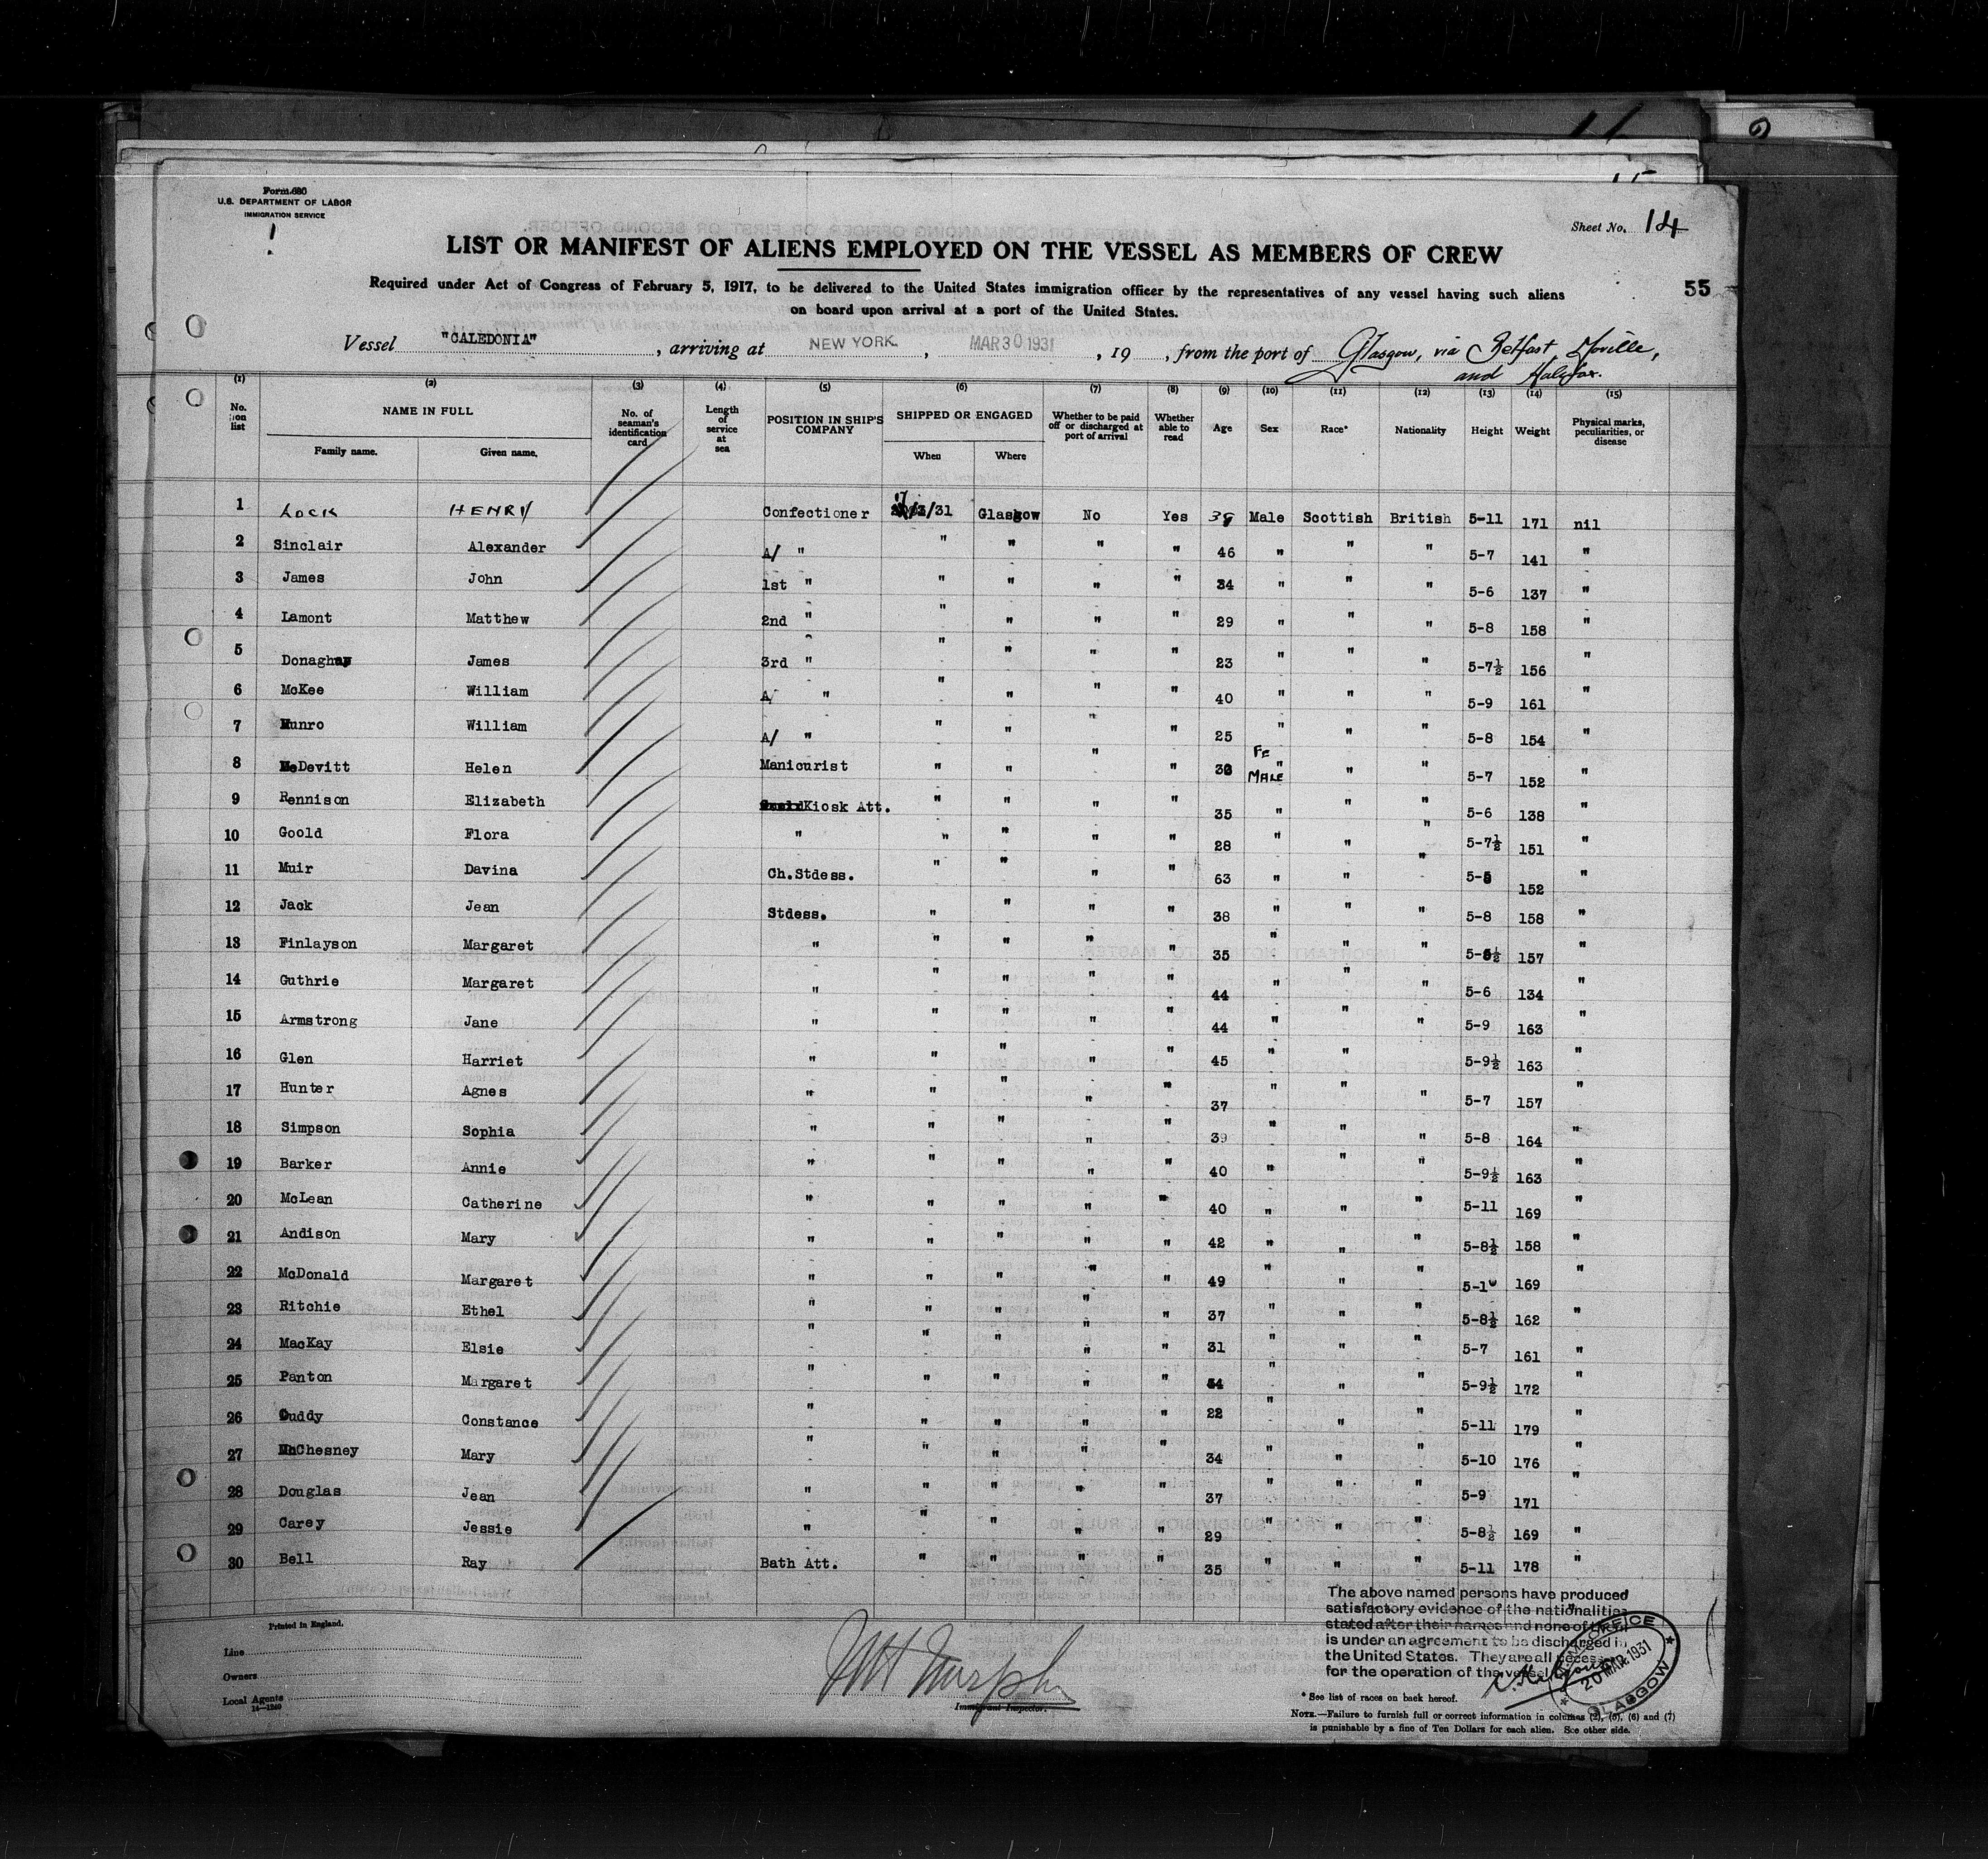 Form 680
U.S. DEPARTMENT OF LABOR
IMMIGRATION SERVICE
Sheet No. 14
LIST OR MANIFEST OF ALIENS EMPLOYED ON THE VESSEL AS MEMBERS OF CREW
55
Required under Act of Congress of February 5, 1917, to be delivered to the United States immigration officer by the representatives of any vessel having such aliens
on board upon arrival at a port of the United States.
Vessel "CALEDONIA", arriving at NEW YORK, MAR 30 1931, 19 , from the port of Glasgow, via Belfast, Moville,
and Halifax.
(1) (2) (3) (4) (5) (6) (7) (8) (9) (10) (11) (12) (13) (14) (15)
No. on list NAME IN FULL Family name. Given name. No. of seaman's identification card Length of service at sea POSITION IN SHIP'S COMPANY SHIPPED OR ENGAGED When Where Whether to be paid off or discharged at port of arrival Whether able to read Age Sex Race* Nationality Height Weight Physical marks, peculiarities, or disease
1 LOCK HENRY Confectioner /31 Glasgow No Yes Male Scottish British 5-11 171 nil
2 Sinclair Alexander A/ " " " " " 46 " " " 5-7 141 "
3 James John 1st " " " " " 34 " " " 5-6 137 "
4 Lamont Matthew 2nd " " " " " 29 " " " 5-8 158 "
5 Donaghay James 3rd " " " " " 23 " " " 5-7½ 156 "
6 McKee William A/ " " " " " 40 " " " 5-9 161 "
7 Munro William A/ " " " " " 25 " " " 5-8 154 "
8 McDevitt Helen Manicurist " " " " FE MALE " " " 5-7 152 "
9 Rennison Elizabeth Kiosk Att. " " " " 35 " " " 5-6 138 "
10 Goold Flora " " " " " 28 " " " 5-7½ 151 "
11 Muir Davina Ch.Stdess. " " " " 63 " " " 5-5 152 "
12 Jack Jean Stdess. " " " " 38 " " " 5-8 158 "
13 Finlayson Margaret " " " " " 35 " " " 157 "
14 Guthrie Margaret " " " " " 44 " " " 5-6 134 "
15 Armstrong Jane " " " " " 44 " " " 5-9 163 "
16 Glen Harriet " " " " " 45 " " 5-9½ 163 "
17 Hunter Agnes " " " " " 37 " " " 5-7 157 "
18 Simpson Sophia " " " " " 39 " " " 5-8 164 "
19 Barker Annie " " " " " 40 " " " 5-9½ 163 "
20 McLean Catherine " " " " " 40 " " " 5-11 169 "
21 Andison Mary " " " " " 42 " " " 5-8½ 158 "
22 McDonald Margaret " " " " " 49 " " " 169 "
23 Ritchie Ethel " " " " " 37 " " " 5-8½ 162 "
24 MacKay Elsie " " " " " 31 " " " 5-7 161 "
25 Panton Margaret " " " " " " " " 5-9½ 172 "
26 Cuddy Constance " " " " " 22 " " " 5-11 179 "
27 McChesney Mary " " " " " 34 " " " 5-10 176 "
28 Douglas Jean " " " " " 37 " " " 5-9 171 "
29 Carey Jessie " " " " " 29 " " " 5-8½ 169 "
30 Bell Ray Bath Att. " " " " 35 " " " 5-11 178 "
The above named persons have produced
satisfactory evidence of the nationalities
stated after their names and none of them
is under an agreement to be discharged in
the United States. They are all necessary
for the operation of the vessel
20 MAR 1931
GLASGOW
Printed in England.
Line
Owners
Local Agents
14—1240
Immigrant Inspector.
* See list of races on back hereof.
NOTE.—Failure to furnish full or correct information in columns (2), (5), (6) and (7)
is punishable by a fine of Ten Dollars for each alien. See other side.